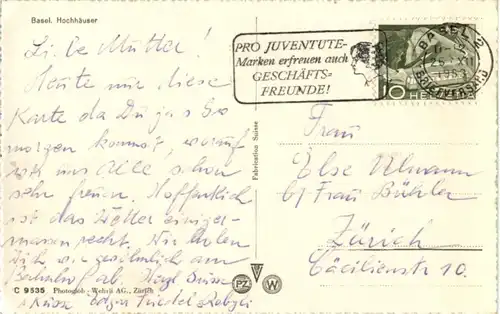 Basel. Hochhäuser
Li. be Mutter!
Heute nur diese
Karte da Du ja s So
morgen kommst, worauf
wir uns Alle schon
sehr freuen. Hoffentlich
ist das Wetter einiger-
massen recht. Wir holen
Dich wie gewöhnlich am
Bahnhof ab. Hzgl Grüsse
& Küsse Edgar Friedel &
C 9535 Photogloh-Wehrli AG., Zürich
Fabrication Suisse
PZ W
PRO JUVENTUTE-
Marken erfreuen auch
GESCHÄFTS-
FREUNDE!
BASEL 2
25. XII
1953
BRIEFVERSAND
10 HELVETIA
Frau
Else Ulmann
b/ Frau Bühler
Zürich
Cäcilienstr 10.